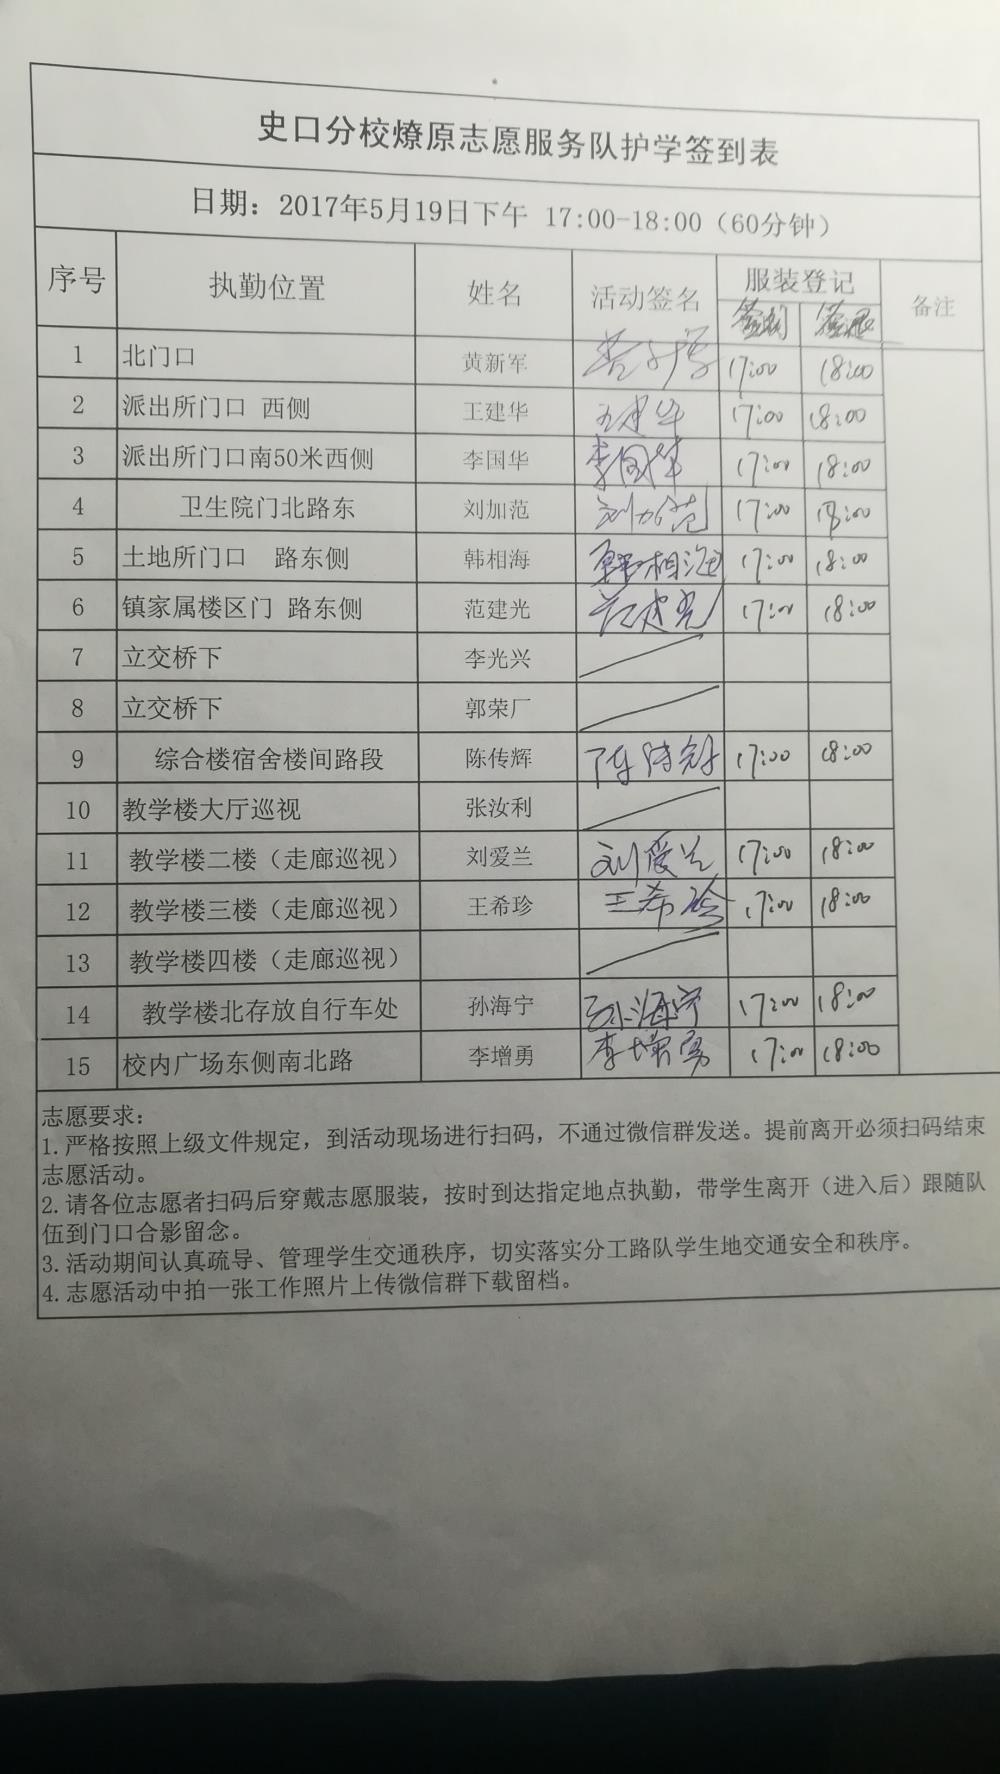 史口分校燎原志愿服务队护学签到表
日期：2017年5月19日下午 17:00-18:00（60分钟）
序号 执勤位置 姓名 活动签名 服装登记 备注
签到 签退
1 北门口 黄新军 17:00 18:00
2 派出所门口 西侧 王建华 王建华 17:00 18:00
3 派出所门口南50米西侧 李国华 李国华 17:00 18:00
4 卫生院门北路东 刘加范 刘加范 17:00 18:00
5 土地所门口 路东侧 韩相海 韩相海 17:00 18:00
6 镇家属楼区门 路东侧 范建光 范建光 17:00 18:00
7 立交桥下 李光兴
8 立交桥下 郭荣厂
9 综合楼宿舍楼间路段 陈传辉 17:00 18:00
10 教学楼大厅巡视 张汝利
11 教学楼二楼（走廊巡视） 刘爱兰 刘爱兰 17:00 18:00
12 教学楼三楼（走廊巡视） 王希珍 王希珍 17:00 18:00
13 教学楼四楼（走廊巡视）
14 教学楼北存放自行车处 孙海宁 孙海宁 17:00 18:00
15 校内广场东侧南北路 李增勇 李增勇 17:00 18:00
志愿要求：
1.严格按照上级文件规定，到活动现场进行扫码，不通过微信群发送。提前离开必须扫码结束
志愿活动。
2.请各位志愿者扫码后穿戴志愿服装，按时到达指定地点执勤，带学生离开（进入后）跟随队
伍到门口合影留念。
3.活动期间认真疏导、管理学生交通秩序，切实落实分工路队学生地交通安全和秩序。
4.志愿活动中拍一张工作照片上传微信群下载留档。